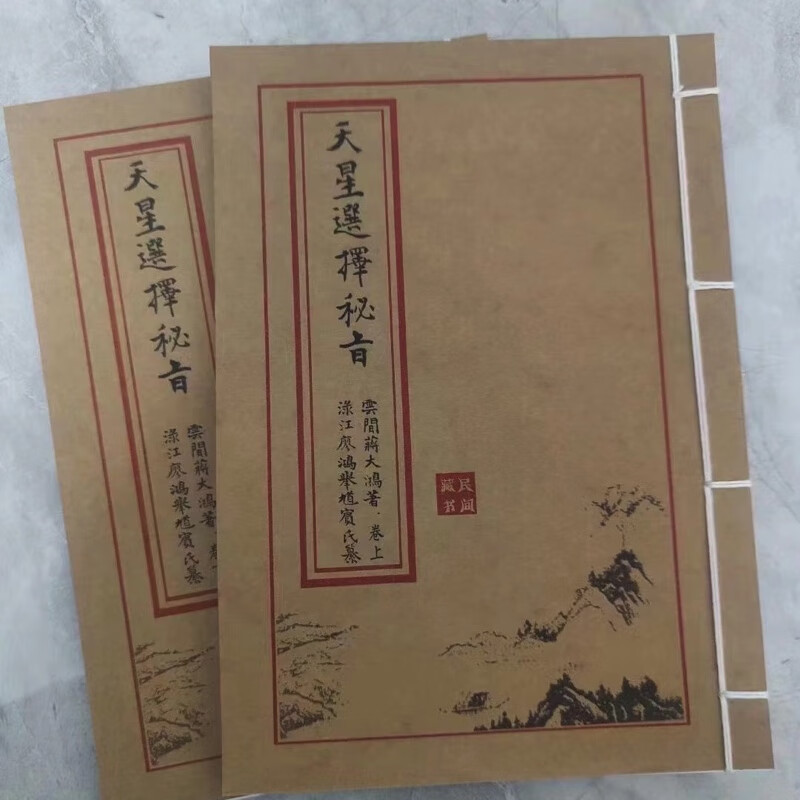 天星選擇秘旨
雲間蔣大鴻著·卷上
淥江廖鴻舉植賓氏纂
民间
藏书
天星選擇秘旨
雲間蔣大鴻著·卷
淥江廖鴻舉植賓氏纂